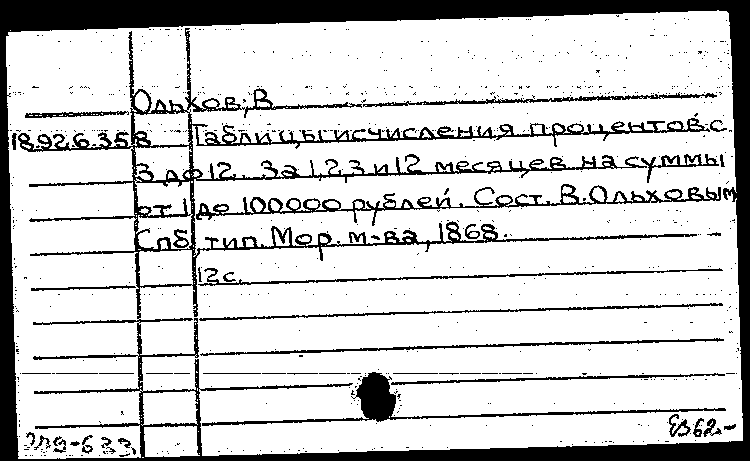 Ольхов, В
18.92.6.358 Таблицы исчисления процентов с
3 до 12. За 1, 2, 3 и 12 месяцев на суммы
от 1 до 100000 рублей. Сост. В. Ольховым
Спб, тип. Мор. м-ва, 1868.
12 с.